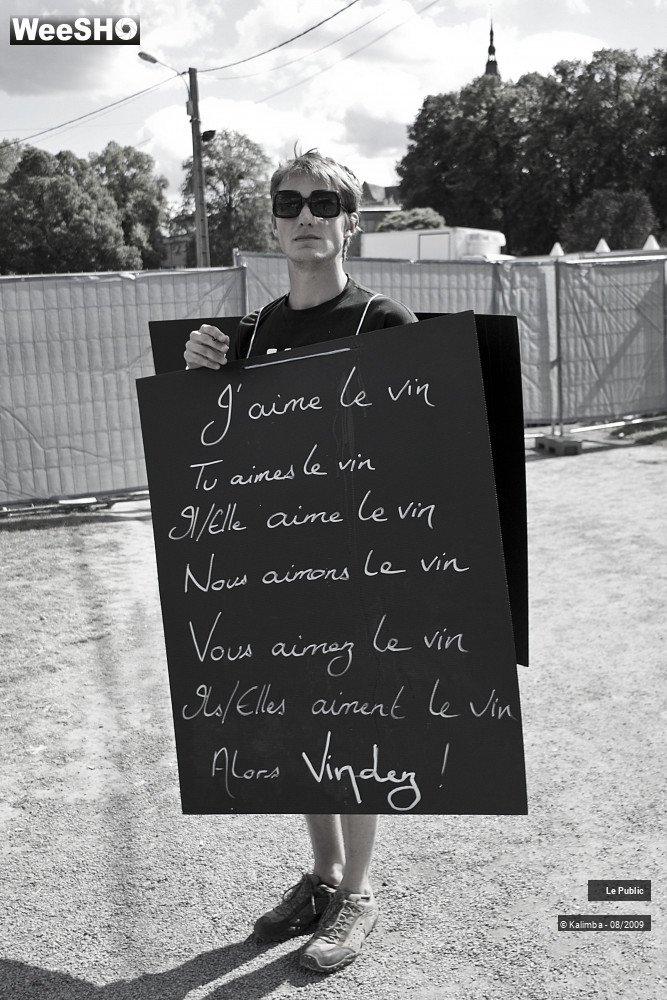 WeeSHO
J'aime le vin
Tu aimes le vin
Il/Elle aime le vin
Nous aimons le vin
Vous aimez le vin
Ils/Elles aiment le vin
Alors Vindez !
Le Public
© Kalimba - 08/2009